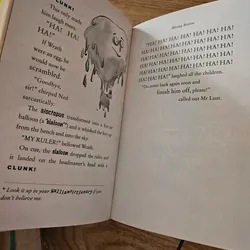 CLUNK!
This only made
him laugh more.
"HA! HA!"
If Wrath
were an egg, he
would now be
scrambled.
"Goodbye,
sir!" chirped Ned
sarcastically.
The sloctopus transformed into a
balloon (a "slaloon"*) and whisked the boy
from the bench and into the sky.
"MY RULER!" bellowed Wrath.
On cue, the slaloon dropped the ruler, and
it landed on the headmaster's head with a
CLUNK!
* Look it up in your Walliamsictionary if you
don't believe me.
"HA! HA! HA! HA! HA! HA! HA!
HA! HA! HA! HA! HA! HA! HA!
HA! HA! HA! HA! HA! HA! HA!
HA! HA! HA! HA! HA! HA! HA!
HA! HA! HA! HA! HA! HA! HA!
HA! HA!" laughed all the children.
"Do come back again soon and
finish him off, please!"
called out Mr Lust.